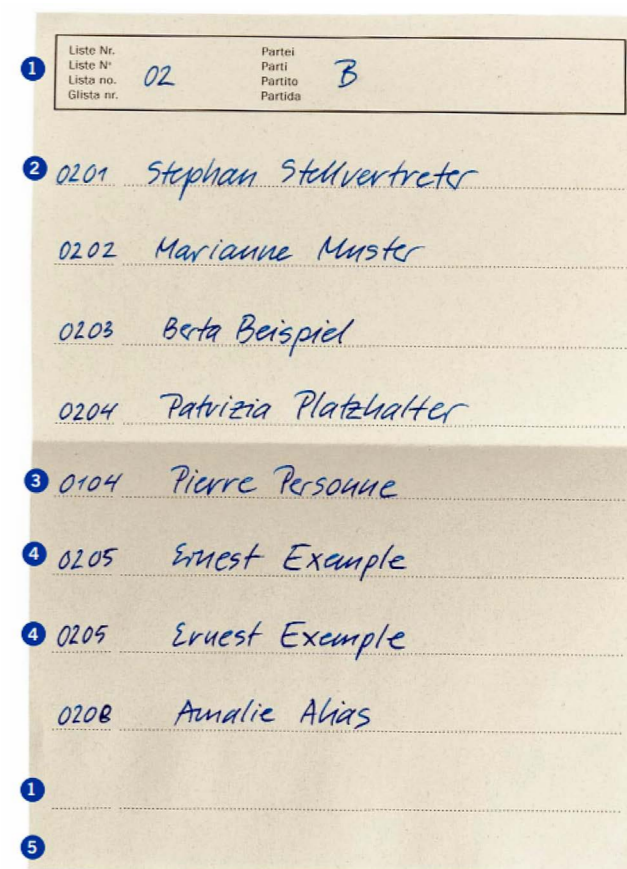 1 Liste Nr. Partei
Liste N° Parti
Lista no. 02 Partito B
Glista nr. Partida
2 0201 Stephan Stellvertreter
0202 Marianne Muster
0203 Berta Beispiel
0204 Patrizia Platzhalter
3 0104 Pierre Personne
4 0205 Ernest Exemple
4 0205 Ernest Exemple
0208 Amalie Alias
1
5